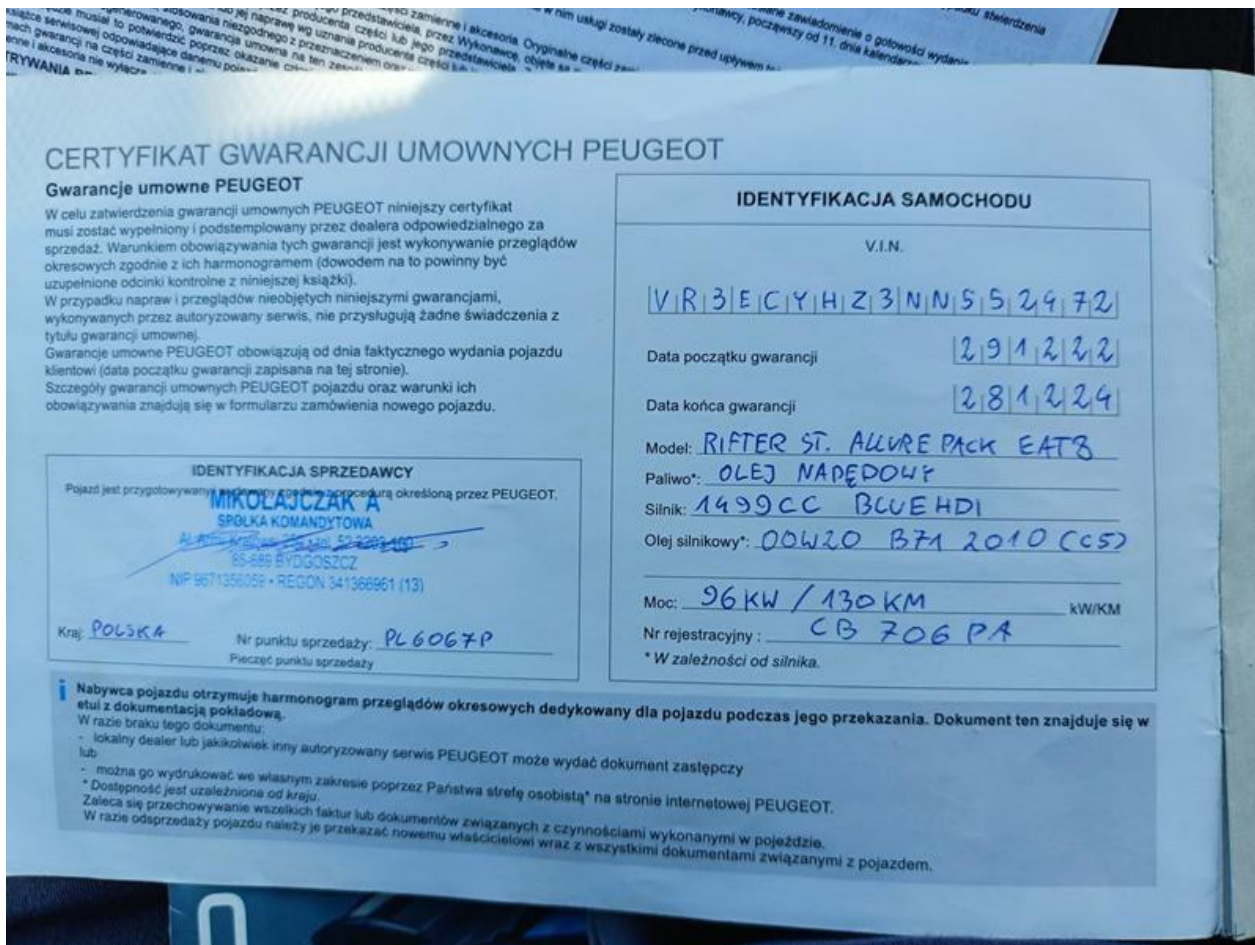 nim usługi zostały zlecone przed upływem
zawiadomienie o gotowości wydania
począwszy od 11. dnia
CERTYFIKAT GWARANCJI UMOWNYCH PEUGEOT
Gwarancje umowne PEUGEOT
W celu zatwierdzenia gwarancji umownych PEUGEOT niniejszy certyfikat
musi zostać wypełniony i podstemplowany przez dealera odpowiedzialnego za
sprzedaż. Warunkiem obowiązywania tych gwarancji jest wykonywanie przeglądów
okresowych zgodnie z ich harmonogramem (dowodem na to powinny być
uzupełnione odcinki kontrolne z niniejszej książki).
W przypadku napraw i przeglądów nieobjętych niniejszymi gwarancjami,
wykonywanych przez autoryzowany serwis, nie przysługują żadne świadczenia z
tytułu gwarancji umownej.
Gwarancje umowne PEUGEOT obowiązują od dnia faktycznego wydania pojazdu
klientowi (data początku gwarancji zapisana na tej stronie).
Szczegóły gwarancji umownych PEUGEOT pojazdu oraz warunki ich
obowiązywania znajdują się w formularzu zamówienia nowego pojazdu.
IDENTYFIKACJA SPRZEDAWCY
Pojazd jest przygotowywany zgodnie z procedurą określoną przez PEUGEOT.
MIKOŁAJCZAK A
SPÓŁKA KOMANDYTOWA
85-689 BYDGOSZCZ
NIP 9671356059 • REGON 341366961 (13)
Kraj: POLSKA
Nr punktu sprzedaży: PL6067P
Pieczęć punktu sprzedaży
IDENTYFIKACJA SAMOCHODU
V.I.N.
VR3ECYHZ3NN552472
Data początku gwarancji 291222
Data końca gwarancji 281224
Model: RIFTER ST. ALLURE PACK EAT8
Paliwo*: OLEJ NAPĘDOWY
Silnik: 1499CC BLUEHDI
Olej silnikowy*: 00W20 B71 2010 (C5)
Moc: 96KW / 130KM kW/KM
Nr rejestracyjny : CB 706 PA
* W zależności od silnika.
i Nabywca pojazdu otrzymuje harmonogram przeglądów okresowych dedykowany dla pojazdu podczas jego przekazania. Dokument ten znajduje się w
etui z dokumentacją pokładową.
W razie braku tego dokumentu:
- lokalny dealer lub jakikolwiek inny autoryzowany serwis PEUGEOT może wydać dokument zastępczy
lub
- można go wydrukować we własnym zakresie poprzez Państwa strefę osobistą* na stronie internetowej PEUGEOT.
* Dostępność jest uzależniona od kraju.
Zaleca się przechowywanie wszelkich faktur lub dokumentów związanych z czynnościami wykonanymi w pojeździe.
W razie odsprzedaży pojazdu należy je przekazać nowemu właścicielowi wraz z wszystkimi dokumentami związanymi z pojazdem.